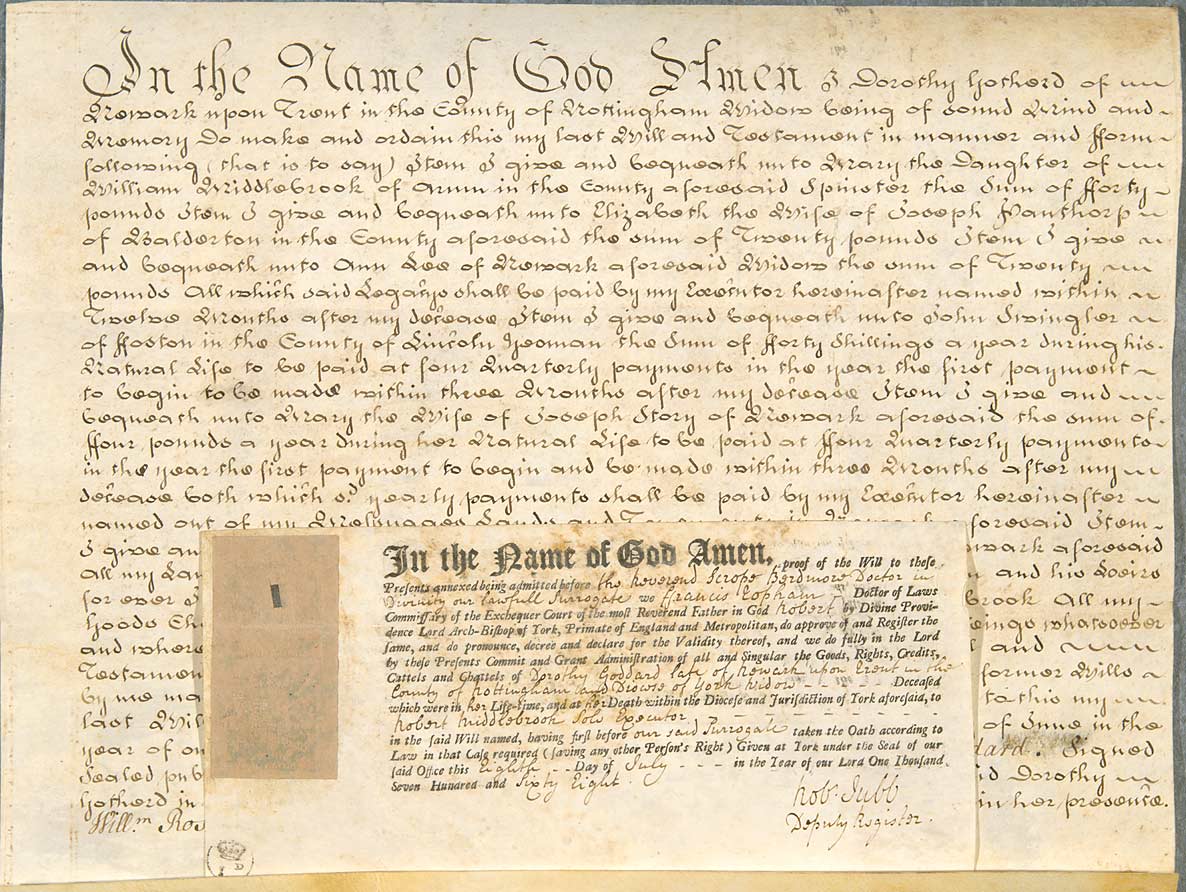 In the Name of God Amen I Dorothy Gotherd of
Newark upon Trent in the County of Nottingham Widow being of sound Mind and
Memory Do make and ordain this my last Will and Testament in manner and fform
following (that is to say) Item I give and bequeath unto Mary the Daughter of
William Middlebrook of Arum in the County aforesaid Spinster the Sum of fforty
pounds Item I give and bequeath unto Elizabeth the Wife of Joseph Panthorp
of Balderton in the County aforesaid the sum of Twenty pounds Item I give
and bequeath unto Ann Lee of Newark aforesaid Widow the sum of Twenty
pounds All which said Legacys shall be paid by my Executor hereinafter named within
Twelve Months after my decease Item I give and bequeath unto John Swingler
of ffoston in the County of Lincoln Yeoman the Sum of fforty Shillings a year during his
Natural Life to be paid at four Quarterly payments in the year the first payment
to begin to be made within three Months after my decease Item I give and
bequeath unto Mary the Wife of Joseph Story of Newark aforesaid the sum of
ffour pounds a year during her Natural Life to be paid at ffour Quarterly payments
in the year the first payment to begin and be made within three Months after my
decease both which sd yearly payments shall be paid by my Executor hereinafter
named out of my Messuages Lands and aforesaid Item
I give an wark aforesaid
all my Lan and his Heirs
for ever I brook All my
Goods Ch eings whatsoever
and where and
Testamen former Wills
by me ma to this my
last Wil of June in the
year of on dard. Signed
Sealed pub id Dorothy
Gotherd in in her presence.
Will.m Ros
In the Name of God Amen, proof of the Will to these
Presents annexed being admitted before the Reverend Scrope Berdmore Doctor in
Divinity our lawfull Surrogate we Francis Topham Doctor of Laws
Commissary of the Exchequer Court of the most Reverend Father in God Robert by Divine Provi-
dence Lord Arch-Bishop of York, Primate of England and Metropolitan, do approve of and Register the
same, and do pronounce, decree and declare for the Validity thereof, and we do fully in the Lord
by these Presents Commit and Grant Administration of all and Singular the Goods, Rights, Credits,
Cattels and Chattels of Dorothy Goddard late of Newark upon Trent in the
County of Nottingham and Diocese of York Widow Deceased
which were in her Life-time, and at her Death within the Diocese and Jurisdiction of York aforesaid, to
Robert Middlebrook Sole Executor
in the said Will named, having first before our said Surrogate taken the Oath according to
Law in that Case required (saving any other Person's Right) Given at York under the Seal of our
said Office this Eighth Day of July in the Year of our Lord One Thousand
Seven Hundred and Sixty Eight.
Rob. Jubb
Deputy Register.